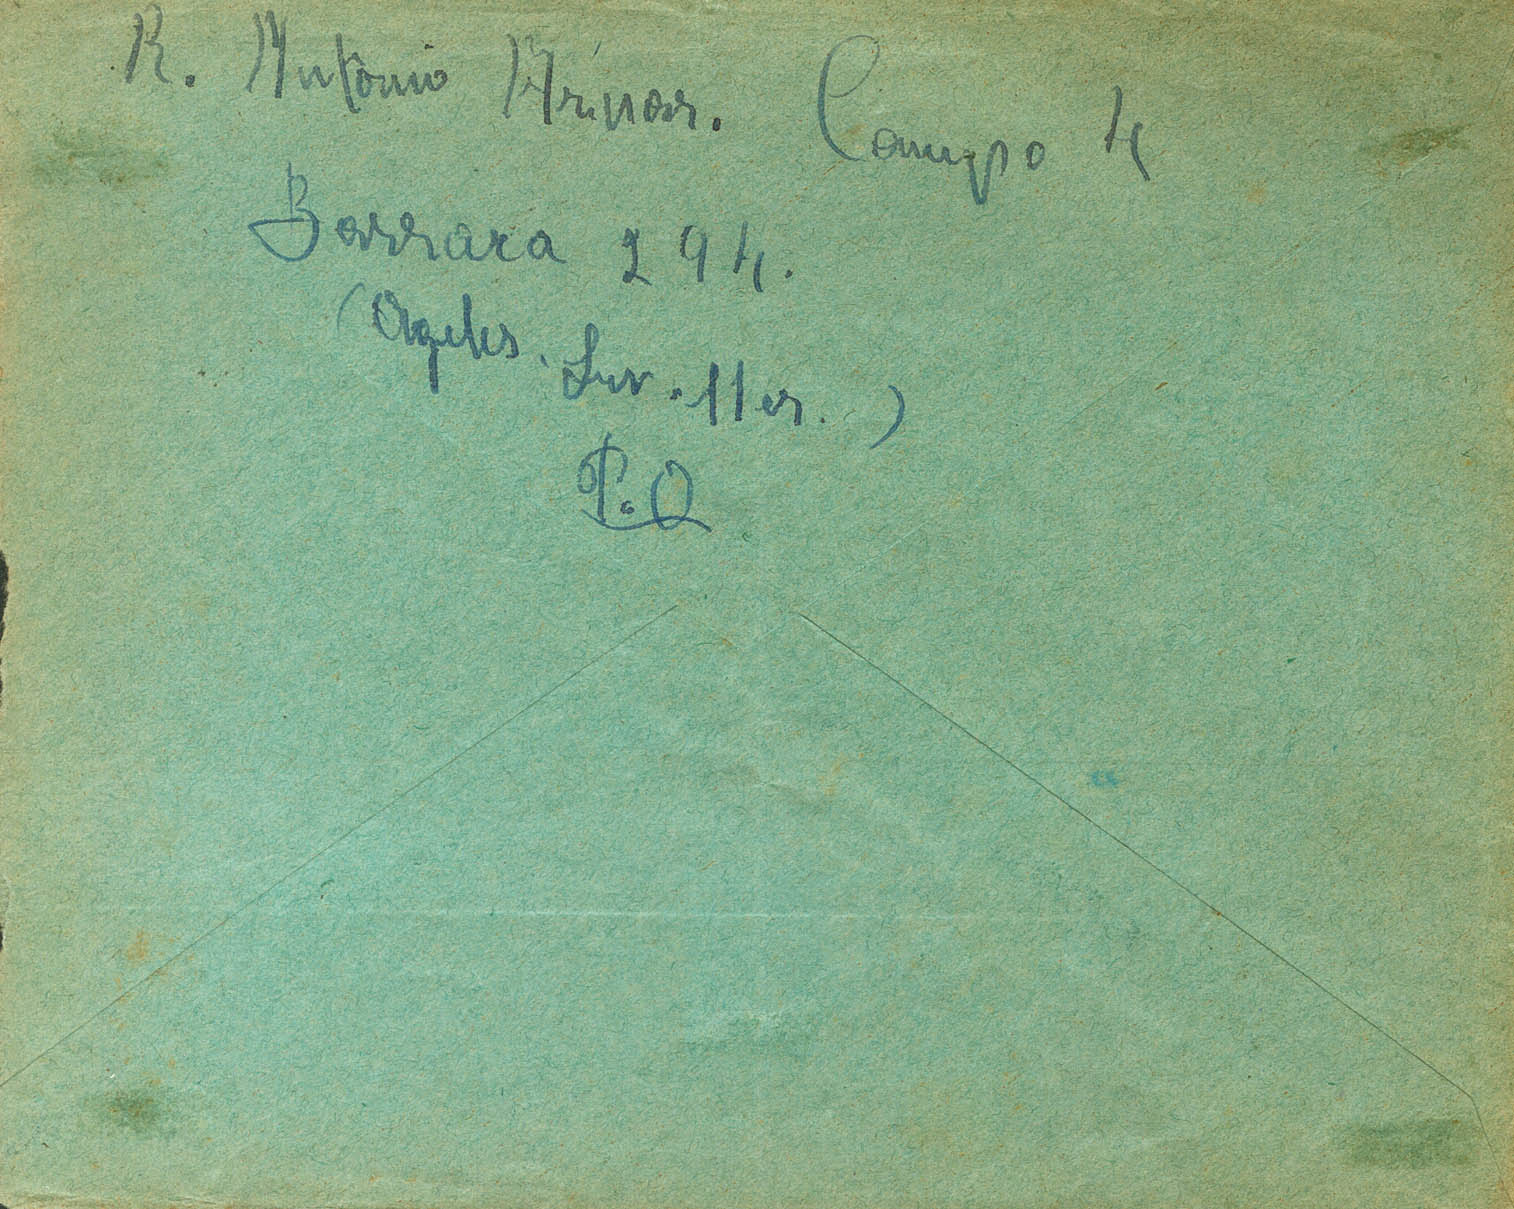 R. António Arinar. Campo 4
Barrara 294.
(Ageles. Sur. Mer.)
P.O